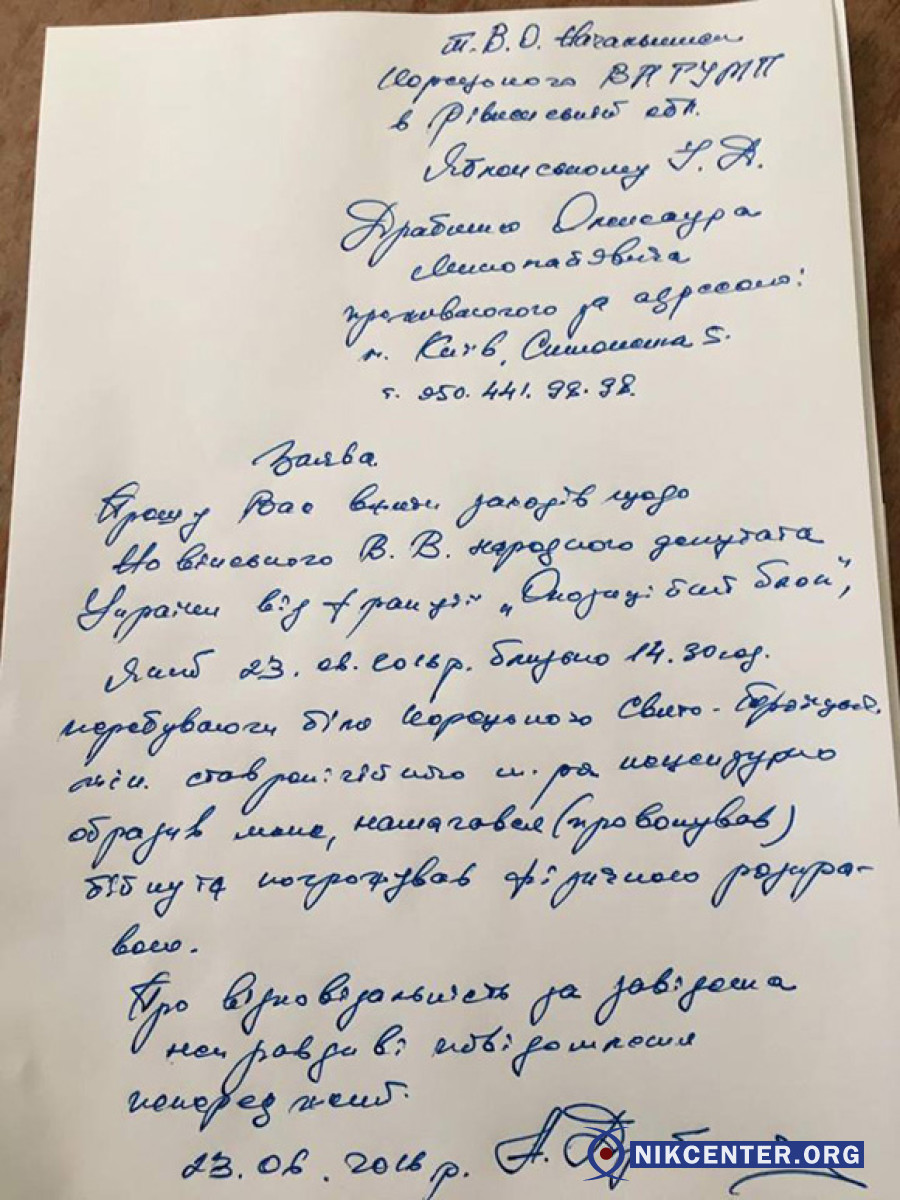 Т.В.О. Начальника
Корецького ВП ГУНП
в Рівненській обл.
Яблонському І. А.
Драбинко Олександра
Миколайовича
проживаючого за адресою:
м. Київ,
т. 050. 441. 98. 98.
Заява
Прошу Вас вжити заходів щодо
Новінського В. В. народного депутата
України від фракції „Опозиційний блок",
Який 23. 06. 2016р. близько 14.30 год.
перебуваючи біля Корецького Свято-Троїцького
жін. ставропігійного м-ря нецензурно
образив мене, намагався (провокував)
бійку та погрожував фізичною розпра-
вою.
Про відповідальність за завідома
неправдиві повідомлення
попереджений.
23.06.2016 р.
NIKCENTER.ORG